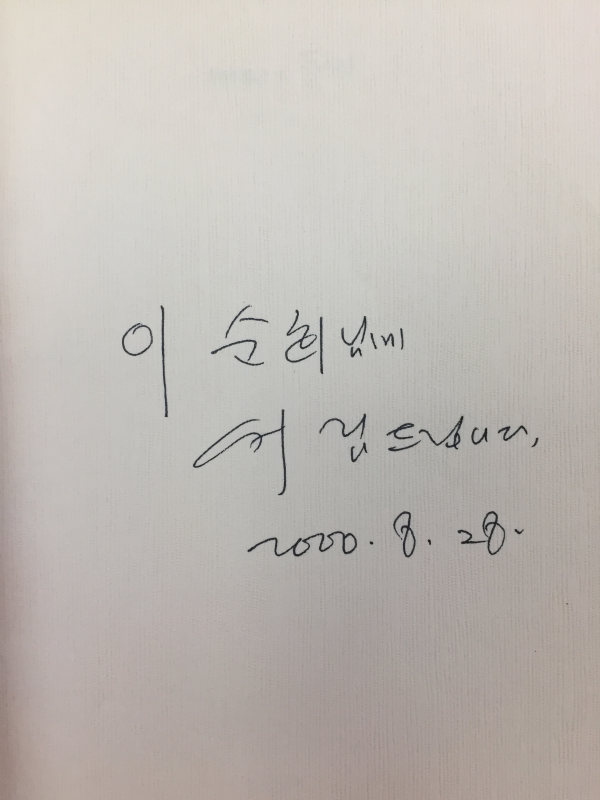 이 순희님에
서림 드립니다,
2000. 8. 28.